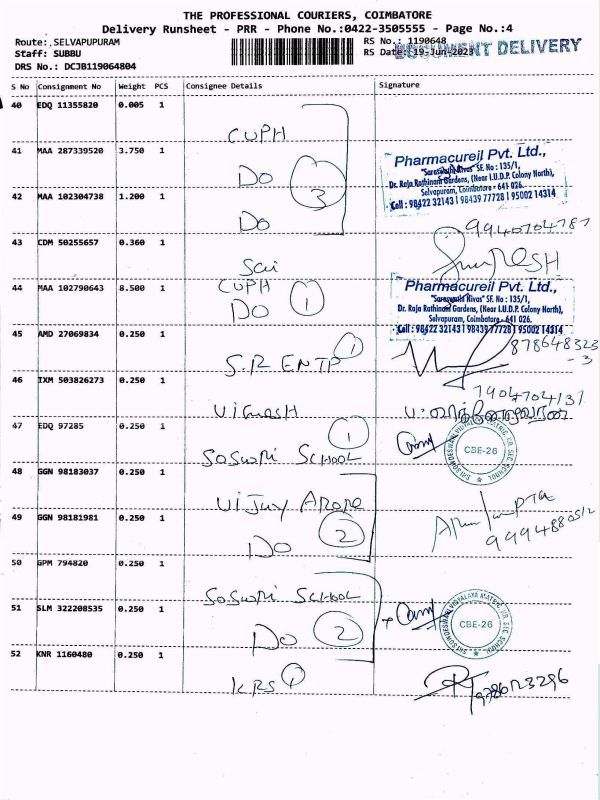 THE PROFESSIONAL COURIERS, COIMBATORE
Delivery Runsheet - PRR - Phone No.:0422-3505555 - Page No.:4
Route: SELVAPUPURAM
RS No.: 1190648
Staff: SUBBU
RS Date: 19-Jun-2023
DOCUMENT DELIVERY
DRS No.: DCJB119064804
S No Consignment No Weight PCS Consignee Details Signature
40 EDQ 11355820 0.005 1
CUPH
41 MAA 287339520 3.750 1
DO
3
Pharmacureil Pvt. Ltd.,
"Saraswathi Nivas" SF. No : 135/1,
Dr. Raja Rathinam Gardens, (Near I.U.D.P. Colony North),
Selvapuram, Coimbatore - 641 026.
Cell : 98422 32143 | 98439 77728 | 95002 14314
42 MAA 102304738 1.200 1
DO
9940704787
43 CDM 50255657 0.360 1
Sai
SureSH
44 MAA 102790643 8.500 1
CUPH
DO 1
Pharmacureil Pvt. Ltd.,
"Saraswathi Nivas" SF. No : 135/1,
Dr. Raja Rathinam Gardens, (Near I.U.D.P. Colony North),
Selvapuram, Coimbatore - 641 026.
Cell : 98422 32143 | 98439 77728 | 95002 14314
45 AMD 27069834 0.250 1
S.R ENTP 1
878648323
-3
46 IXM 503826273 0.250 1
VIGNESH
7904704131
47 EDQ 97285 0.250 1
SOSWRI SCHOOL 1
CBE-26
48 GGN 98183037 0.250 1
Vijay Arore
49 GGN 98181981 0.250 1
DO 2
Arun Gupta
9994880512
50 GPM 794820 0.250 1
SOSWRI SCHOOL
51 SLM 322208535 0.250 1
DO 2
CBE-26
52 KNR 1160480 0.250 1
KRS 1
9786123296